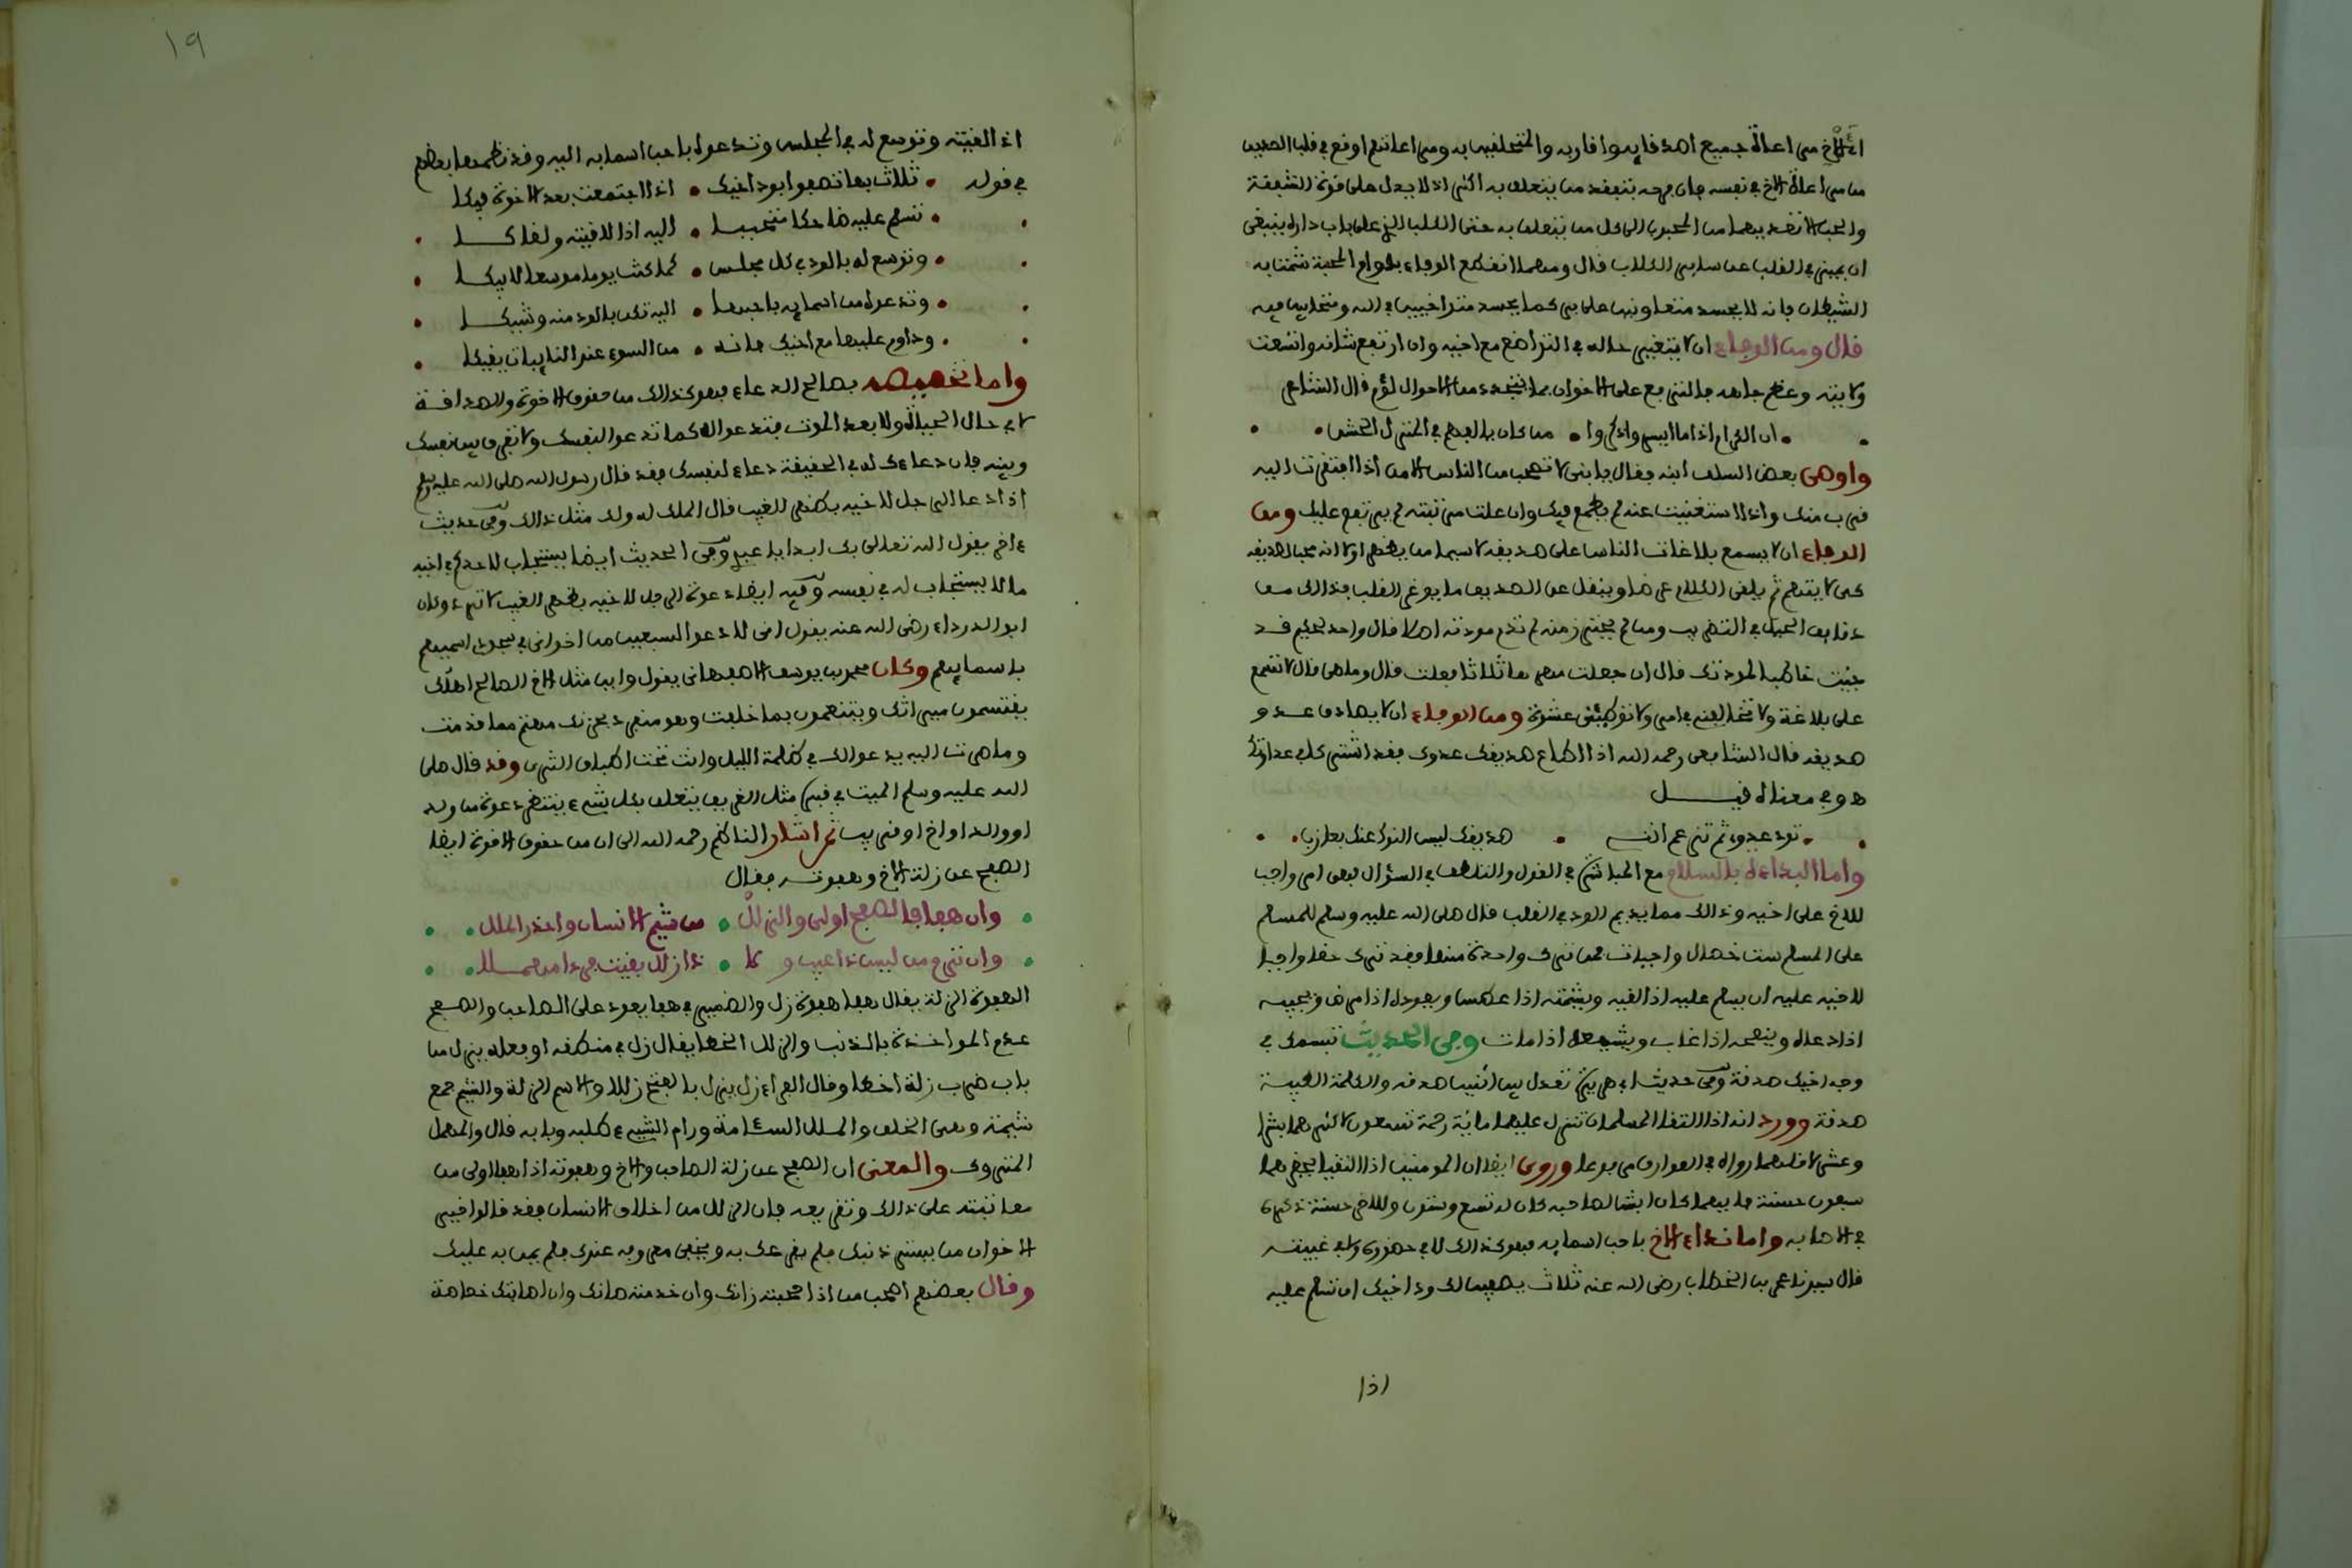 الأخ من اعاة جميع اصدقايه واقاربه والمتعلقين به ومن اعاتهم اوقع في قلب الصديق
من من اعاة الأخ في نفسه فان فرحه بتفقد من يتعلق به اكثر اذ لا يدل على قوة الشفقة
والحب الا تعديهما من المحبوب الى كل من يتعلق به حتى الكلب الذي على باب داره ينبغي
ان يميز في القلب عن ساير الكلاب قال ومهما انقطع الوفاء بدوام المحبة شمت به
الشيطان فانه لا يحسد متعاونين على بر كما يحسد متواخيين في الله ومتحابين فيه
قال ومن الوفاء ان لا يتغير حاله في التواضع مع اخيه وان ارتفع شانه واتسعت
ولايته وعظم جاهه فالترفع على الاخوان بما يتجدد من الاحوال لؤم قال الشاعر
ان الكرام اذا ما ايسروا ذكروا • من كان يالفهم في المنزل الخشن
واوصى بعض السلف ابنه فقال يا بني لا تصحب من الناس الا من اذا افتقرت اليه
قرب منك واذا استغنيت عنه لم يطمع فيك وان علت مرتبته لم يرتفع عليك ومن
الوفاء ان لا يسمع بلاغات الناس على صديقه لا سيما من يظهر اولا انه محب لصديقه
كي لا يتهم ثم يلقي الكلام عرضا وينقل عن الصديق ما يوغر القلب فذالك من
دقايق الحيل في التضريب ومن لم يحترز منه لم تدم مودته اصلا قال واحد لحكيم قد
جئت خاطبا لمودتك قال ان جعلت مهرها ثلاثا فعلت قال وما هي قال لا تسمع
علي بلاغة ولا تخالفني في امر ولا توطئني عشوة ومن الوفاء ان لا يصادق عدو
صديقه قال الشافعي رحمه الله اذا اطاع صديقك عدوك فقد اشتركا في عداوتك
هو وفي معناه قيل
تود عدوي ثم تزعم انني • صديقك ليس النوك عنك بعازب
واما البداءة بالسلام مع المباشرة في القول والتلطف في السؤال فهي امر واجب
للاخ على اخيه وذالك مما يديم الود في القلب قال صلى الله عليه وسلم للمسلم
على المسلم ست خصال واجبات فمن ترك واحدة منها فقد ترك حقا واجبا
لاخيه عليه ان يسلم عليه اذا لقيه ويشمته اذا عطس ويعوده اذا مرض ويجيبه
اذا دعاه وينصحه اذا غاب ويشيعه اذا مات وفي الحديث تبسمك في
وجه اخيك صدقة وفي حديث ابي هريرة تعدل بين اثنين صدقه والكلمة الطيبة
صدقة وورد انه اذا التقا المسلمان تنزل عليهما مائة رحمة تسعون لاكثرهما بشرا
وعشر لاقلهما رواه في العوارف مرفوعا وروي ايضا ان المومنين اذا التقيا يغفر لهما
سبعون حسنة فايهما كان ابش لصاحبه كان له تسع وستون وللاخر حسنة ذكره
في الاصابه واما نداء الاخ باحب اسمايه فهو كذالك لا في حضوره ولا في غيبته
قال سيدنا عمر بن الخطاب رضي الله عنه ثلاث يصفين لك ود اخيك ان تسلم عليه
اذا
١٩
اذا لقيته وتوسع له في المجلس وتدعوه باحب اسمايه اليه وقد نظمها بعضهم
في قوله • ثلاث بها تصفو ابود اخيك • اذا اجتمعت بعد الاخوة فيكا
تسلم عليه ضاحكا متحببا • اليه اذا لاقيته ولقاكا
وتوسع له بالود في كل مجلس • كما كنت يوما موسعا لابيكا
وتدعوه من اسمايه باحبها • اليه تكن بالود منه وشيكا
وداوم عليها مع اخيك فانه • من السوء عند النايبات يقيكا
واما تخصيصه بصالح الدعاء فهو كذالك من حقوق الاخوة والصداقة
لا في حال الحياة ولا بعد الموت فتدعو له كما تدعو لنفسك ولا تفرق بين نفسك
وبينه فان دعاءك له في الحقيقة دعاء لنفسك فقد قال رسول الله صلى الله عليه وسلم
اذا دعا الرجل لاخيه بظهر الغيب قال الملك له ولك مثل ذالك وفي حديث
ءاخر يقول الله تعالى بك ابدا يا عبدي وفي الحديث ايضا يستجاب لاحدكم في اخيه
ما لا يستجاب له في نفسه وفيه ايضا دعوة الرجل لاخيه بظهر الغيب لا ترد وكان
ابو الدرداء رضي الله عنه يقول اني لادعو لسبعين من اخواني في سجودي اسميهم
باسمايهم وكان محمد بن يوسف الاصبهاني يقول واين مثل الاخ الصالح اهلك
يقتسمون ميراثك ويتنعمون بما خلفت وهو منفرد بحزنك مهتم مما قدمت
وما صرت اليه يدعو لك في ظلمة الليل وانت تحت اطباق الثرى وقد قال صلى
الله عليه وسلم الميت في قبره مثل الغريق يتعلق بكل شيء ينتظر دعوة من ولد
او والد او اخ او قريب ثم اشار الناظم رحمه الله الى ان من حقوق الاخوة ايضا
الصفح عن زلة الاخ وهفوته فقال
وان هفا فالصفح اولى والزلل • من شيم الانسان واحذر الملل
وان ترم من ليس ذا عيب ولا • ذا زلل بقيت فردا مهملا
الهفوة الزلة يقال هفا هفوة زل والضمير في هفا يعود على الصاحب والصفح
عدم المواخذة بالذنب والزلل الخطا يقال زل في منطقه او فعله يزل من
باب ضرب زلة اخطا وقال الفراء زل يزل بالفتح زللا والاسم الزلة والشيم جمع
شيمة وهي الخلق والملل السئامة ورام الشيء طلبه وبابه قال والمهمل
المتروك والمعنى ان الصفح عن زلة الصاحب والاخ وهفوته اذا هفا اولى من
معاتبته على ذالك وتقريعه فان الزلل من اخلاق الانسان فقد قالوا خير
الاخوان من يستر ذنبك فلم يقرعك به ويخفي معروفه عندك فلم يمن به عليك
وقال بعضهم اصحب من اذا صحبته زانك وان خدمته صانك وان اصابتك خصاصة